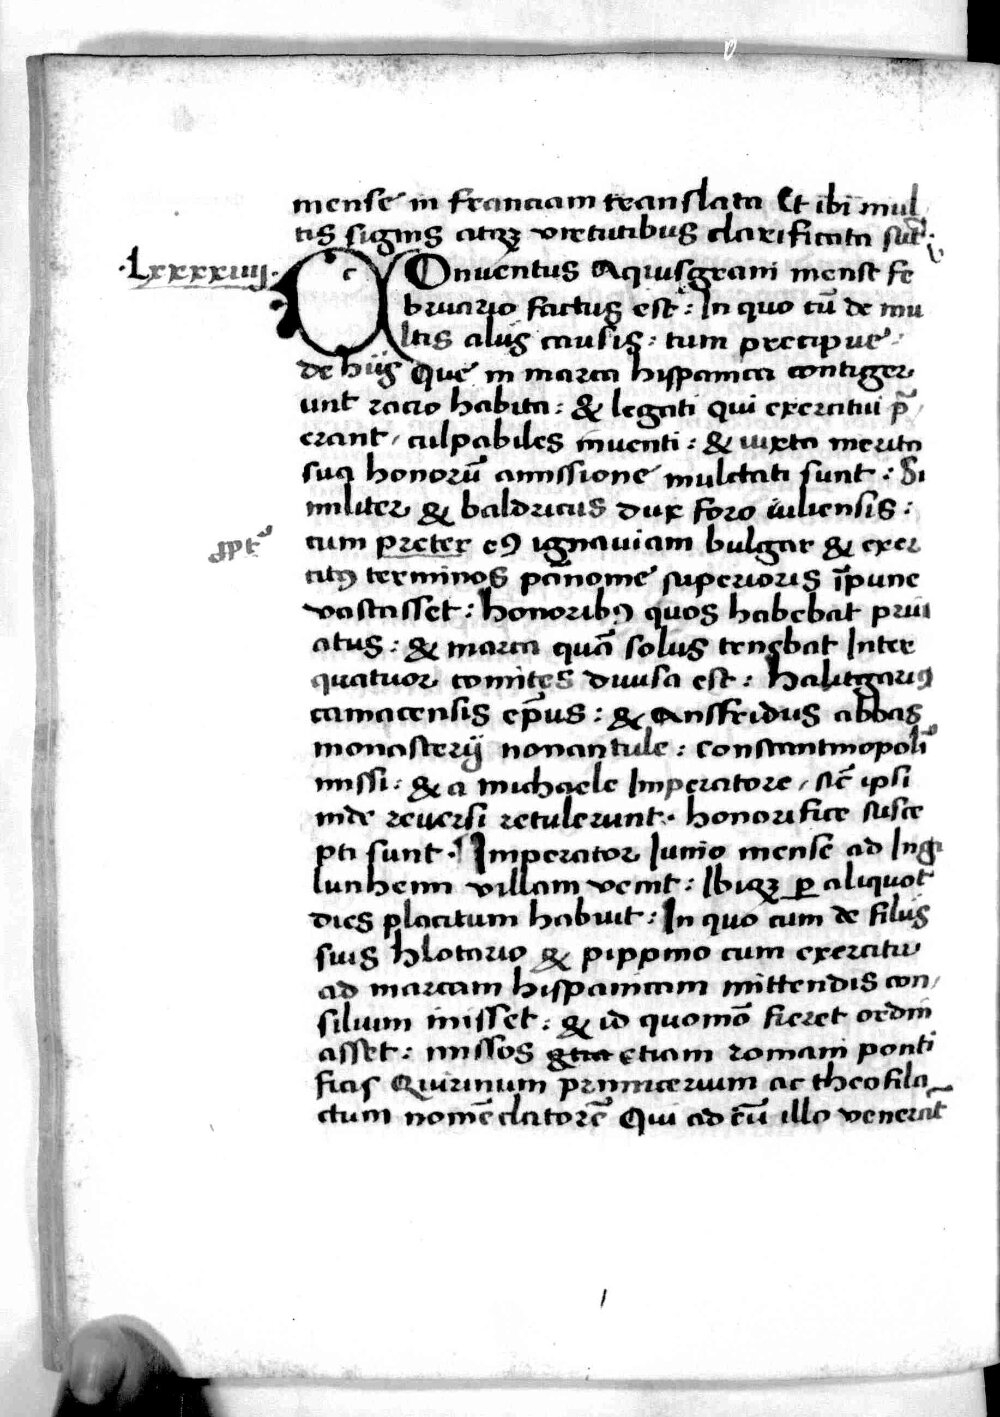 mense in franciam translata Et ibi mul
tis signis atqꝫ virtutibus clarificata sūt.
·Lxxxxiiij·
COnuentus Aquisgrani mense fe
bruario factus est: In quo cū de mu
ltis alijs causis: tum precipue
de hijs Que in marca hispanica contiger
unt racio habita: & legati qui exercitui p̄
erant, culpabiles inventi: & iuxta merita
sua honorū amissione mulctati sunt: Si
militer & baldricus dux foro iuliensis:
cum preter eꝰ ignauiam bulgar & exer
ꝓpt̄
citꝰ terminos panonie superioris īpune
vastasset: honoribꝰ quos habebat priu
atus: & marca quā solus tenebat Inter
quatuor comites diuisa est: halitgariꝰ
camacensis ep̄us: & Ansfridus abbas
monasterij nonantule: constantinopolī
missi: & a michaele Imperatore, sic̄ ipsi
inde reuersi retulerunt. honorifice susce
pti sunt. Imperator Iunio mense ad Ingi
lunheim villam venit: Ibiqꝫ ꝑ aliquot
dies placitum habuit: In quo cum de filijs
suis hlotario & pippino cum exercitu
ad marcam hispanicam mittendis con,
silium inisset: & id quomō fieret ordin
asset: missos etiam romani ponti
ficis Quirinum primicerium ac theofila
ctum nomēclatorē Qui ad eū illo venerāt